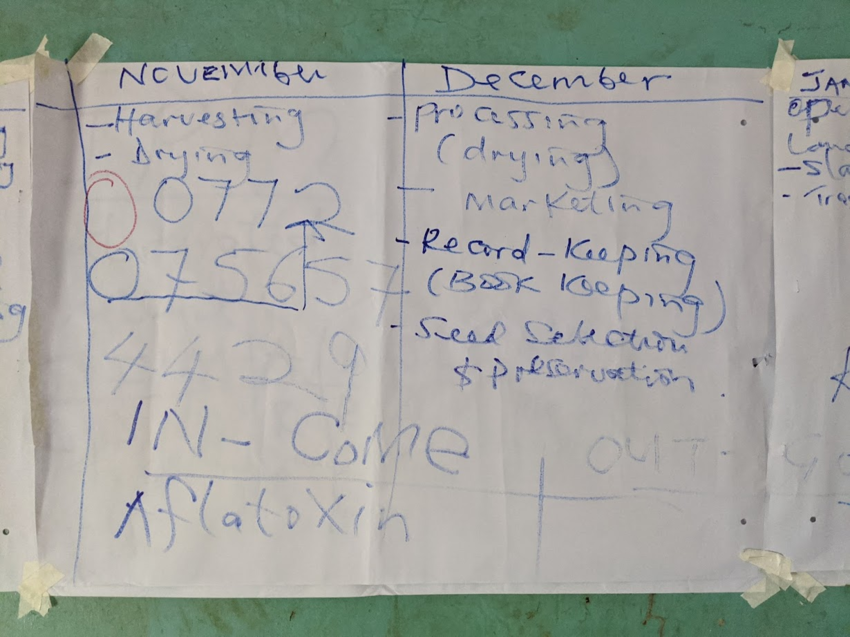 NOVEMber
- Harvesting
- Drying
0 0772
075657
4429
IN-COME
Aflatoxin
December
- Processing
(drying)
- Marketing
- Record-Keeping
(Book Keeping)
- Seed Selection
& preservation.
OUT-GO
JAN
ope
Land